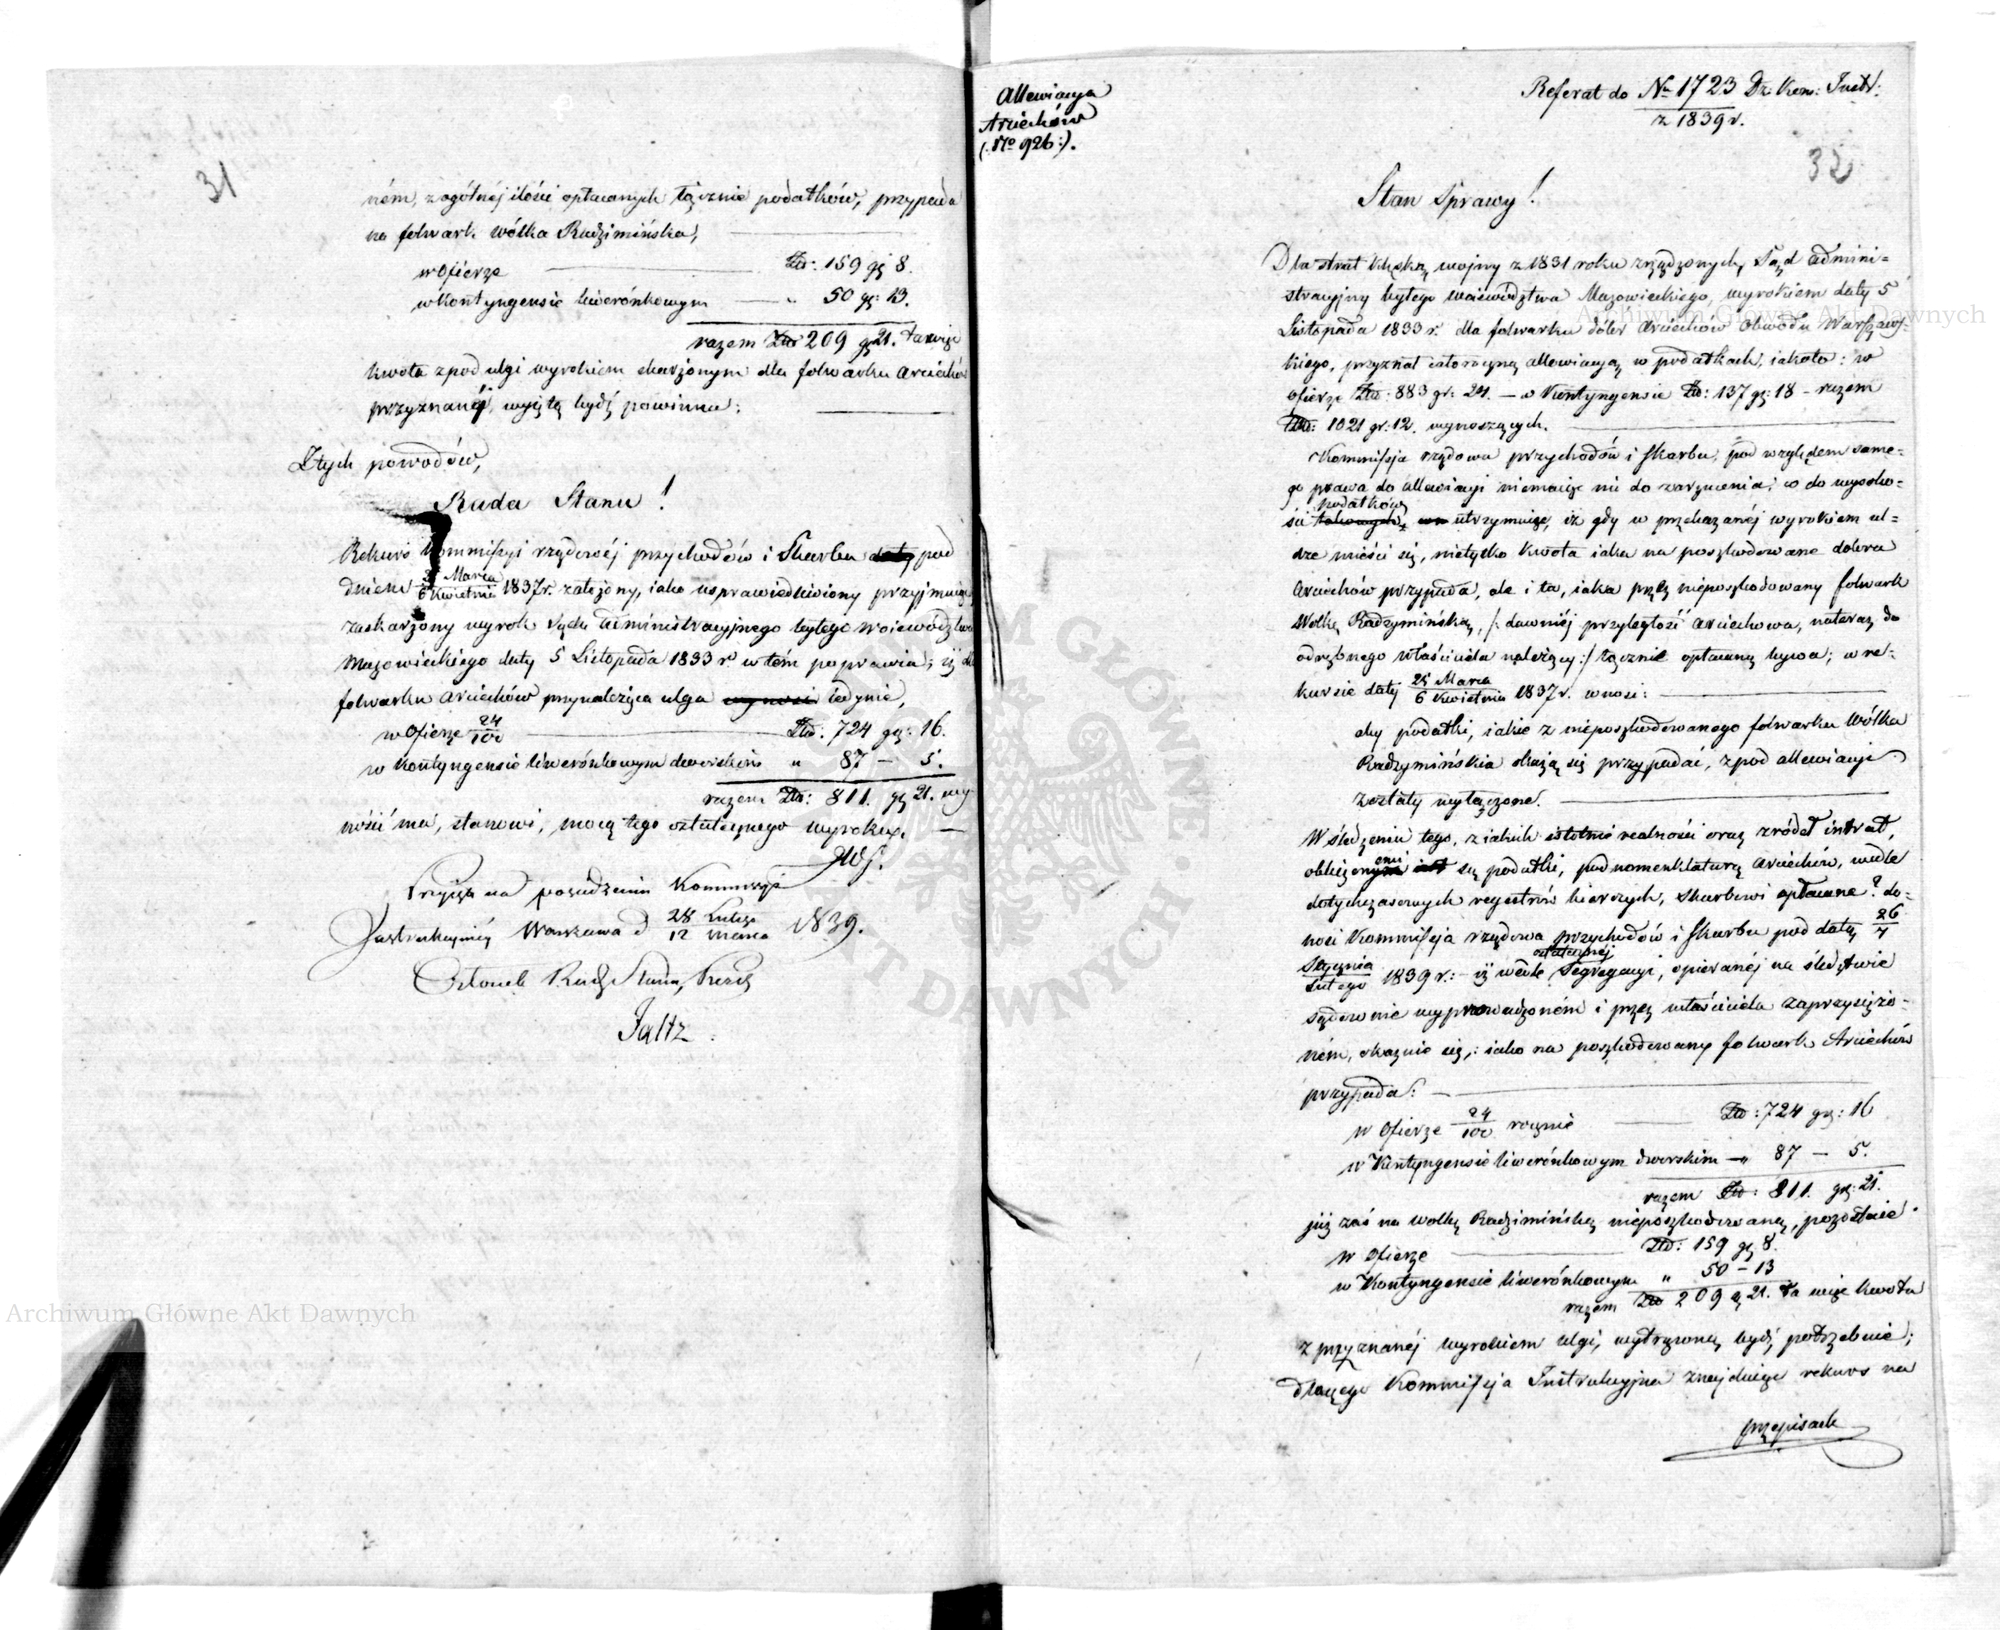 31
ném, z ogólnéj ilości opłacanych łącznie podatków, przypada
na folwark wólka Radzimińska,
w Ofierze Złp: 159 gr 8.
w Kontyngensie liwerónkowym " 50 gr: 13.
razem Złp 209 gr 21. ta więc
kwota z pod ulgi wyrokiem skarżonym dla folwarku Arciechów
przyznanéj, wyiętą bydź powinna;
Ztych powodów,
Rada Stanu!
Rekurs Kommissyi rządowéj przychodów i Skarbu daty pod
dniem 25 Marca / 6 Kwietnia 1837 r. założony, iako usprawiedliwiony przyjmuiąc,
zaskarżony wyrok Sądu Administracyjnego byłego Województwa
Mazowieckiego daty 5 Listopada 1833 r. w tém poprawia; iż dla
folwarku Arciechów przynależąca ulga wynosi iedynie,
w Ofierze 24/100 Złp: 724 gr: 16.
w Kontyngensie liwerónkowym dworskim " 87 – 5.
razem Złp: 811. gr 21. wy-
nosić ma, stanowi, mocą tego ostatecznego wyroku.
Przyięta na posiedzeniu Kommissyi
Instrukcyinéy Warszawa d 28 Lutego / 12 Marca 1839.
Członek Rady Stanu, Prezes
Faltz.
Allewiacya
Arciechów
(: No 926 :).
Referat do No 1723 Dz. Kom: Instr:
z 1839 r.
32
Stan Sprawy!
Dla strat klęską wojny z 1831 roku zrządzonych, Sąd Admini=
stracyjny byłego Województwa Mazowieckiego, wyrokiem daty 5
Listopada 1833 r. dla folwarku dóbr Arciechów Obwodu Warszaws-
kiego, przyznał całoroczną allewiacyą w podatkach, iakoto: w
Ofierze Złp: 883 gr: 24. – w Kontyngensie Złp: 137 gr: 18 – razem
Złp: 1021 gr: 12. wynoszących.
Kommissja rządowa przychodów i Skarbu, pod względem same-
go prawa do allewiacyi niemaiąc nic do zarzucenia; co do wysoko-
podatków
ści utrzymuiąc, iż gdy w przekazanéj wyrokiem ul-
dze mieści się, nietylko kwota iaka na poszkodowane dobra
Arciechów przypada, ale i ta, iaka przez nieposzkodowany folwark
Wolkę Radzymińską, /: dawniéj przyległość Arciechowa, nateraz do
odrębnego właściciela należący :/ łącznie opłacaną bywa; w re-
kursie daty 25 Marca / 6 Kwietnia 1837 r. wnosi:
aby podatki, iakie z nieposzkodowanego folwarku Wólka
Radzymińska okażą się przypadać, z pod allewiacyi
zostały wyłączone.
W śledzeniu tego, z iakich istotnie realności oraz zródeł intrat,
obliczonemi są podatki, pod nomenklaturą Arciechów, wedle
dotychczasowych regestrów bierczych, Skarbowi opłacane? do-
nosi Kommissja rządowa przychodów i Skarbu pod datą 26/7
ostatecznéj
Stycznia / Lutego 1839 r: – iż wedle Segregacyi, opieranéj na śledztwie
sądownie wyprowadzoném i przez właściciela zaprzysiężo-
ném, okazuie się, : iako na poszkodowany folwark Arciechów
przypada:
w Ofierze 24/100 rocznie Złp: 724 gr: 16
w Kontyngensie liwerónkowym dworskim – " 87 – 5.
razem Złp: 811. gr: 21.
już zaś na wolkę Radzimińską nieposzkodowaną, pozostaie
w Ofierze Złp: 159 gr 8.
w Kontyngensie liwerónkowym " 50 – 13
razem Złp 209 gr 21. ta więc kwota
z przyznanéj wyrokiem ulgi, wytrąconą bydź potrzebuie;
dlaczego Kommissja Instrukcyjna znajduiąc rekurs na
przepisach
Archiwum Główne Akt Dawnych
Archiwum Główne Akt Dawnych